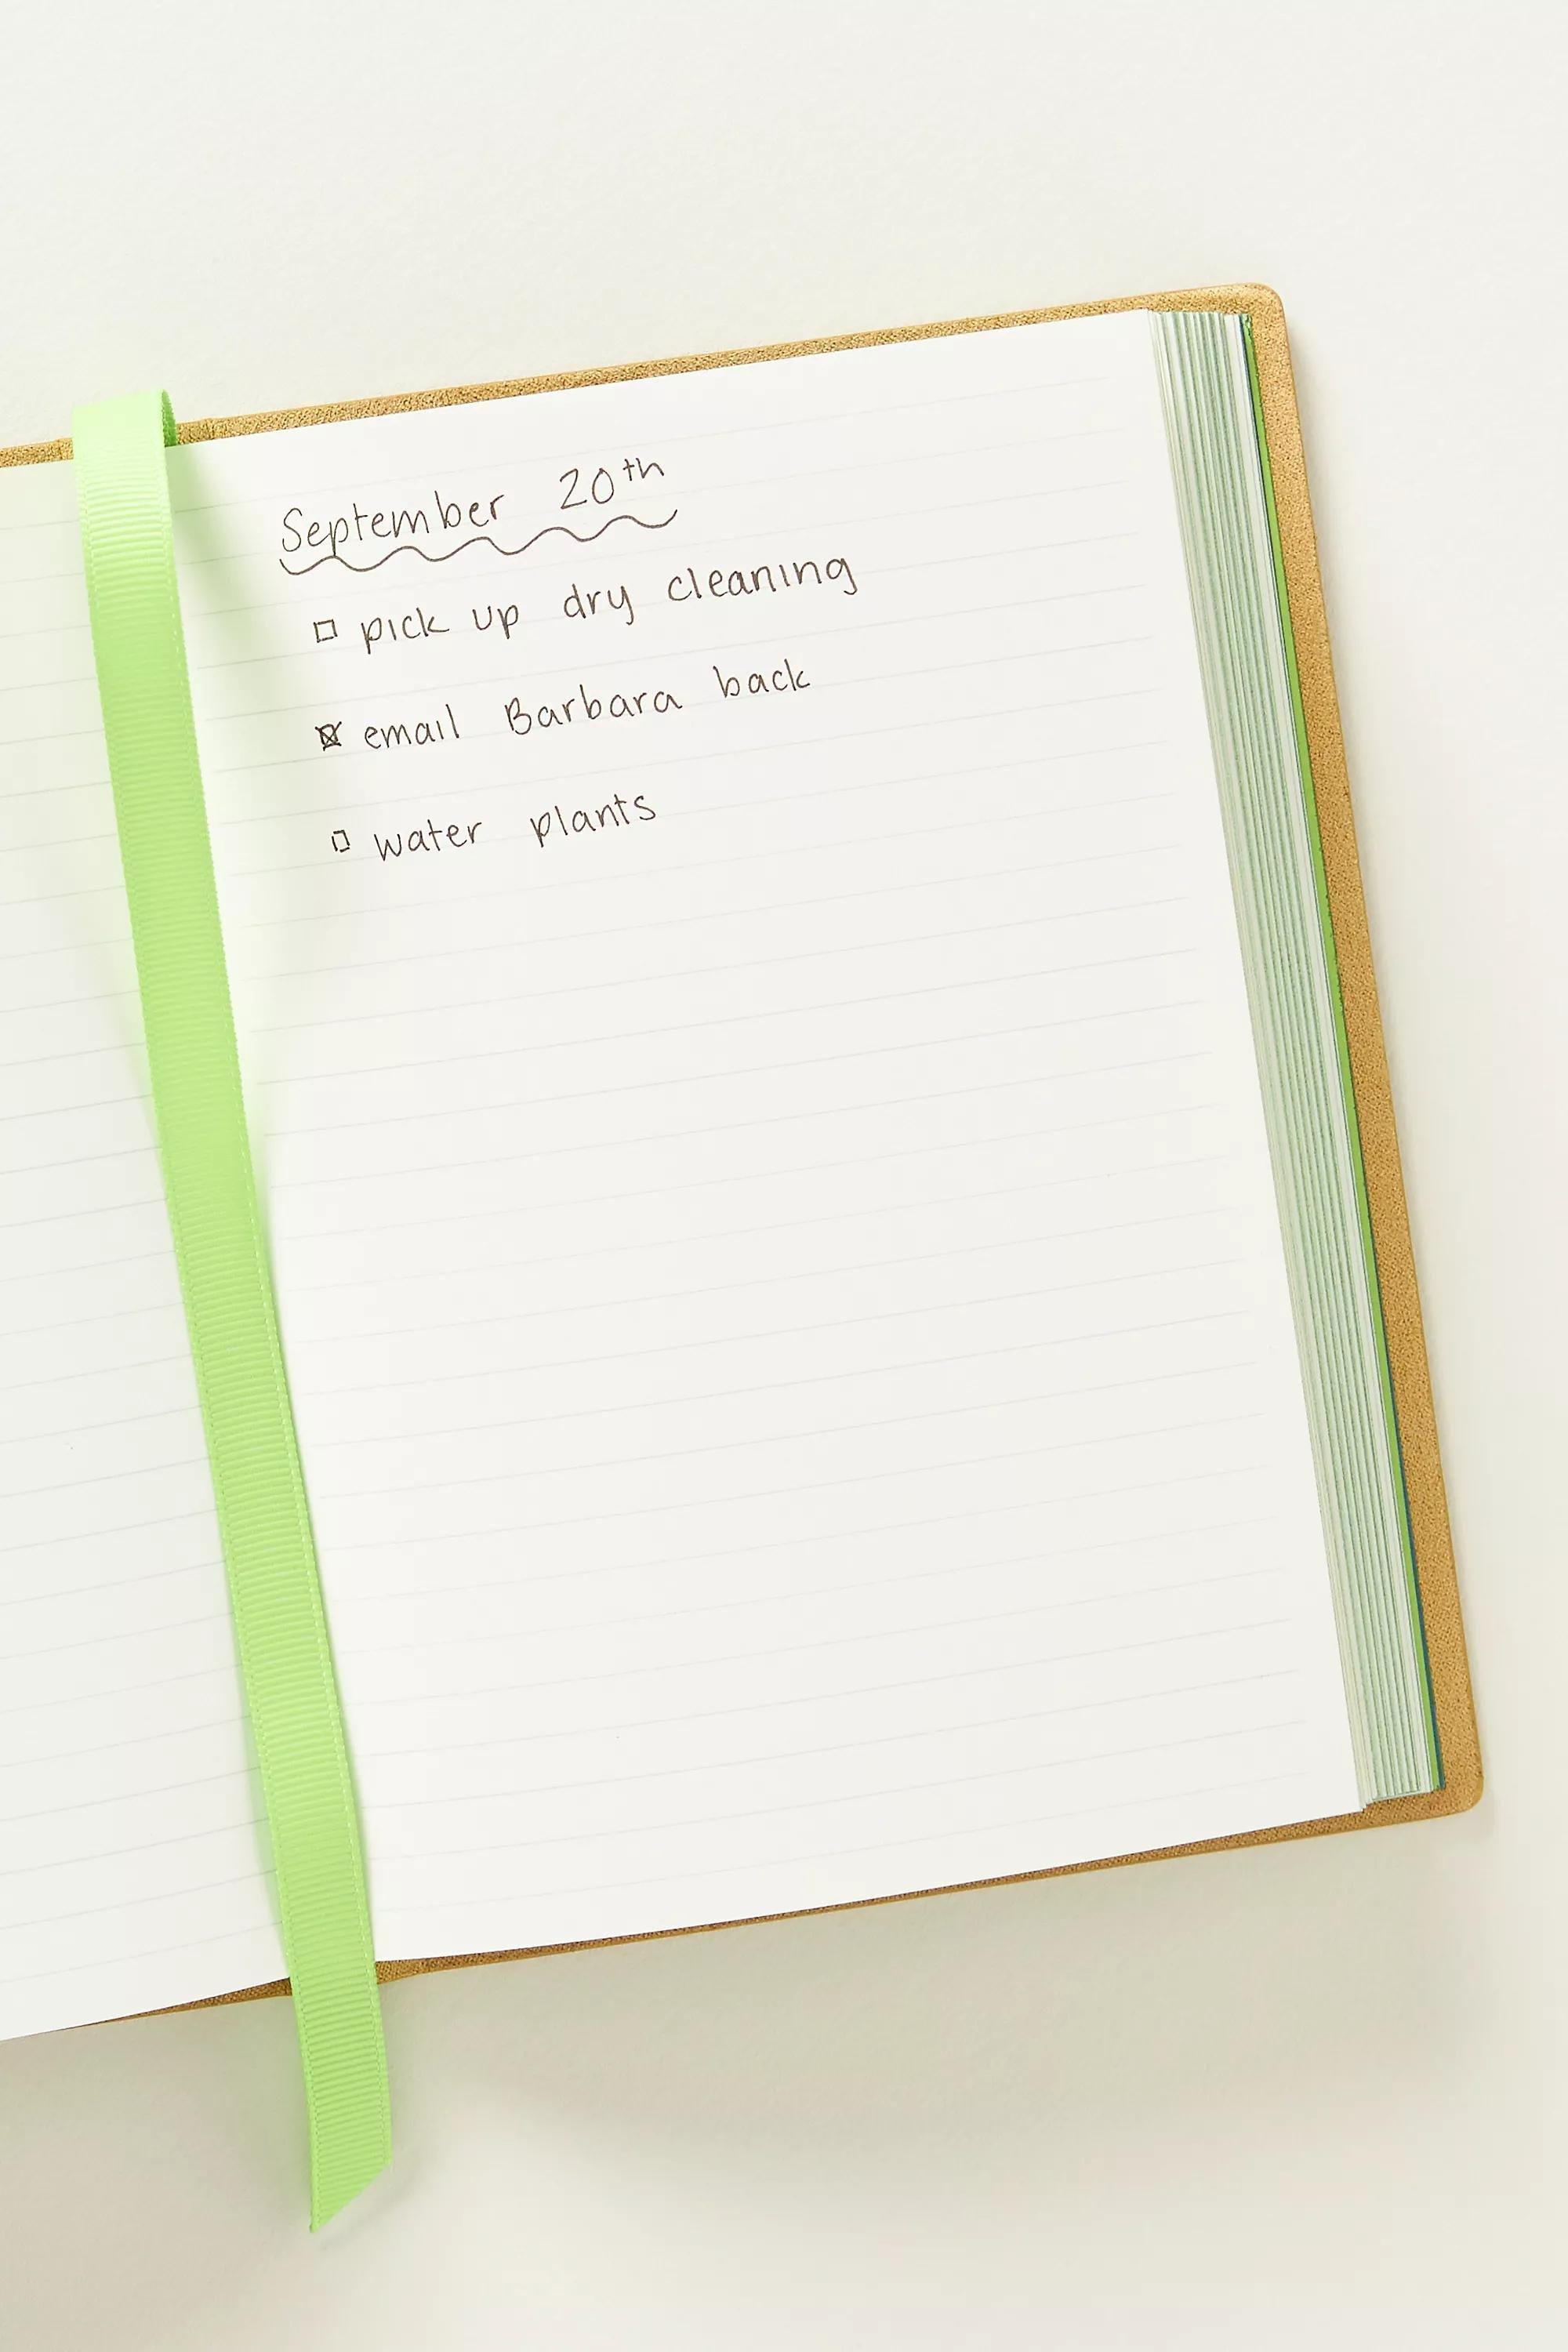 September 20th
☐ pick up dry cleaning
☒ email Barbara back
☐ water plants